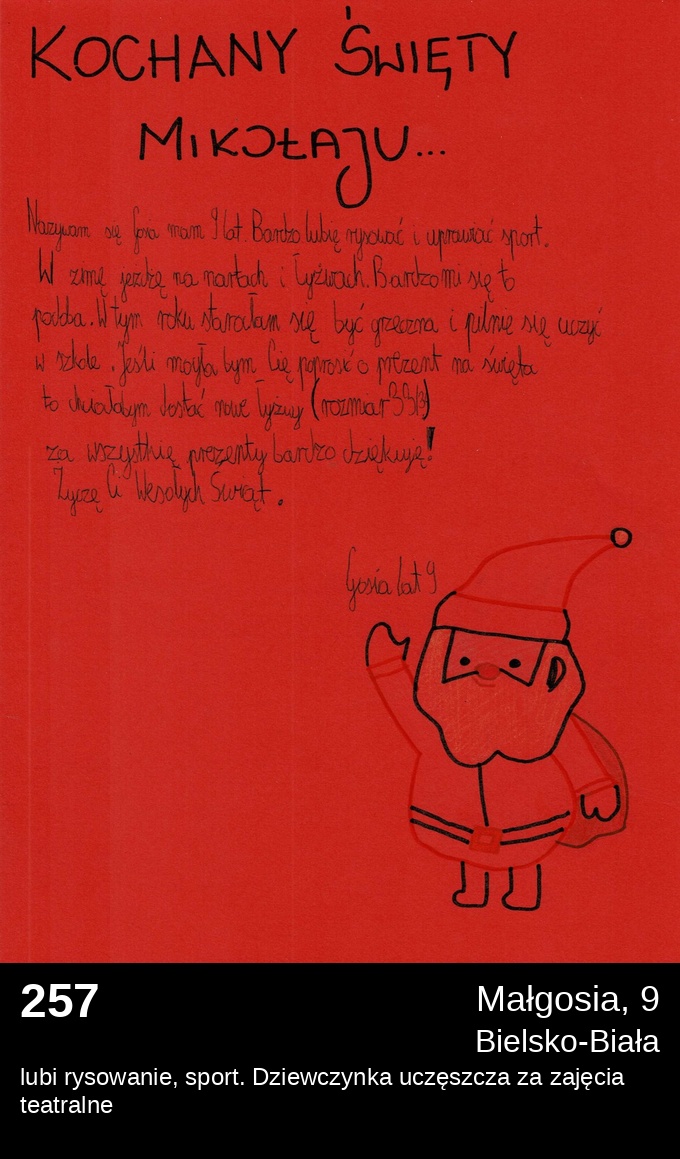 KOCHANY ŚWIĘTY
MIKOŁAJU...
Nazywam się Gosia mam 9 lat. Bardzo lubię rysować i uprawiać sport.
W zimę jeżdżę na nartach i łyżwach. Bardzo mi się to
podoba. W tym roku starałam się być grzeczna i pilnie się uczyć
w szkole. Jeśli mogła bym Cię poprosić o prezent na święta
to chciałabym dostać nowe łyżwy (rozmiar
za wszystkie prezenty bardzo dziękuję!
Życzę Ci Wesołych Świąt.
Gosia lat 9
257
Małgosia, 9
Bielsko-Biała
lubi rysowanie, sport. Dziewczynka uczęszcza za zajęcia
teatralne